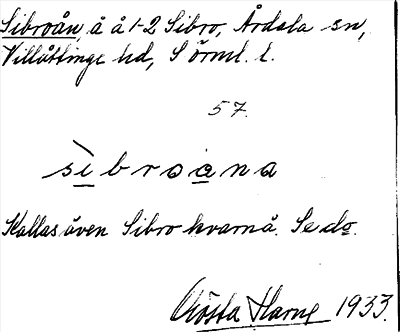 Sibroån, å å 1-2 Sibro, Årdala sn,
Villåttinge hd, Sörml. l.
57.
sìbroåna
Kallas även Sibro kvarnå. Se do.
Gösta Harne 1933.